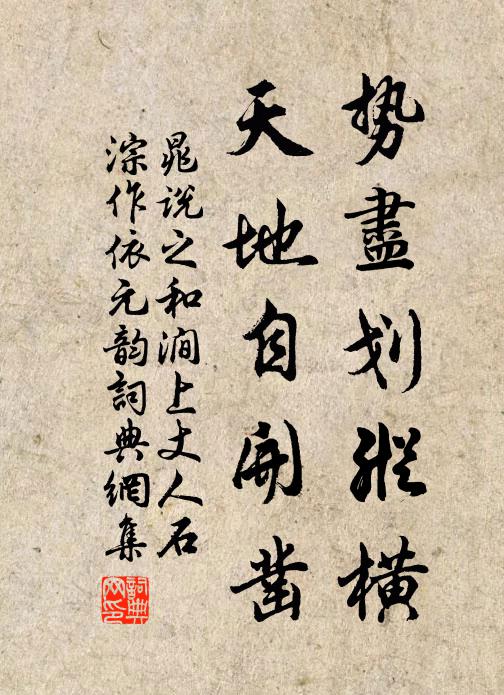 势盡划縱橫
天地自開鑿
晁說之和澗上丈人石
淙作依元韵詞典網集
詞典網印